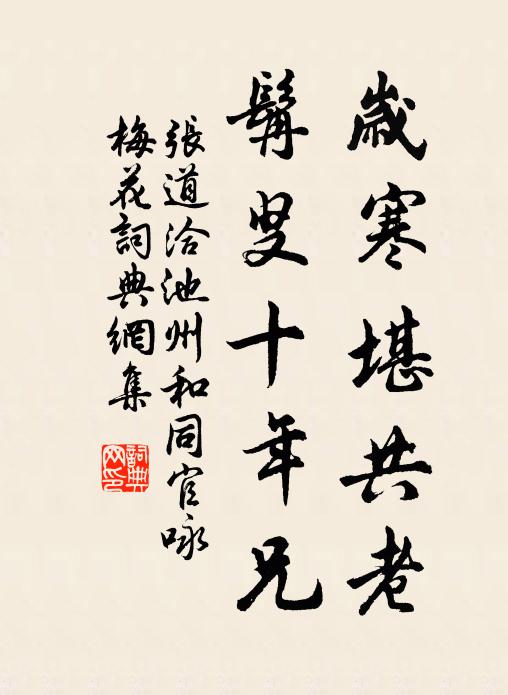 歲寒堪共老
髯叟十年兄
張道洽池州和同官咏
梅花詞典網集
詞典
网印